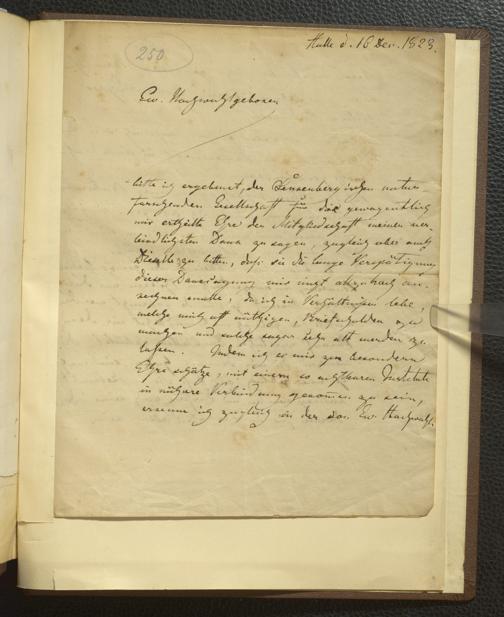 250
Halle d. 16 Dec. 1828.
Ew. Hochwohlgeboren
bitte ich ergebenst, der Senkenbergischen natur-
forschenden Gesellschaft für die gewogentlich
mir ertheilte Ehre der Mitgliedschaft meinen ver-
bindlichsten Dank zu sagen, zugleich aber auch
Dieselbe zu bitten, daß sie die lange Verspätigung
dieser Danksagung mir nicht allzuhoch an-
rechnen möchte, da ich in Verhältnissen lebe,
welche mich oft nöthigen, Briefschulden zu
machen und solche sogar sehr alt werden zu
lassen. Indem ich es mir zur besondern
Ehre schätze, mit einem so achtbaren Institute
in nähere Verbindung genommen zu sein,
ersenne ich zugleich in der von Ew. Hochwohl-